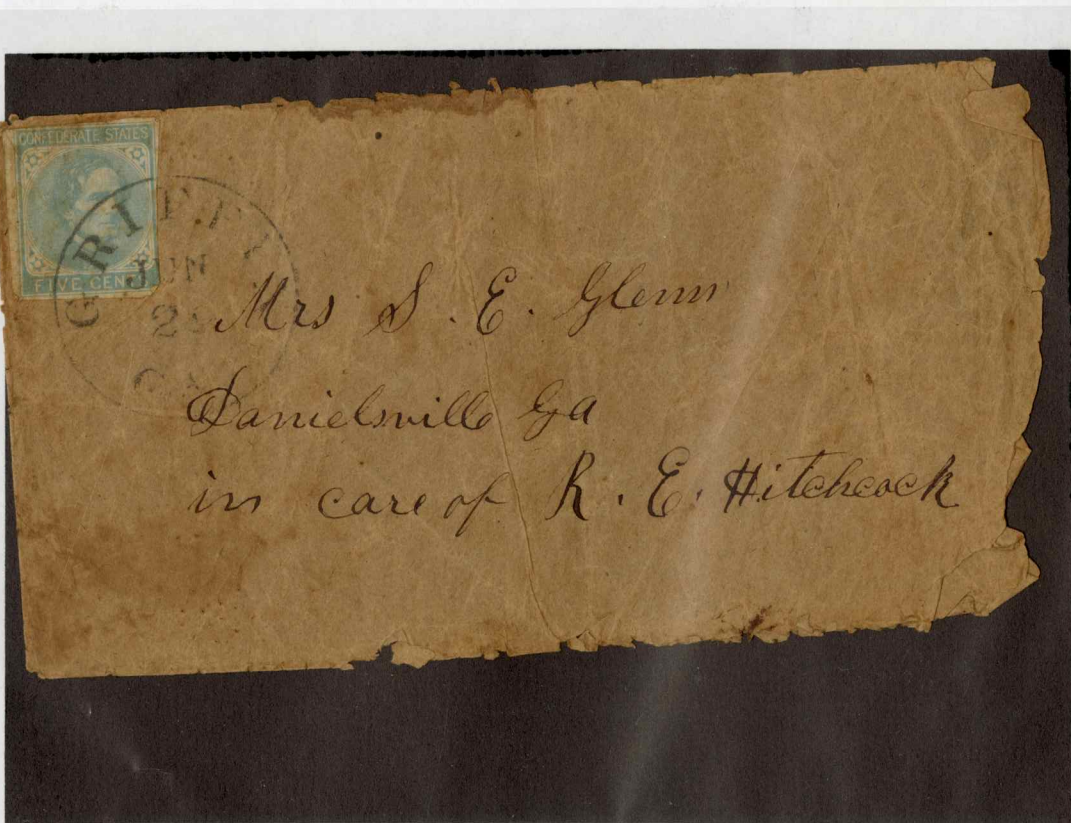 CONFEDERATE STATES
FIVE CENT
GRIFFI
JUN
GA
Mrs S. E. Glenn
Danielsville Ga
in care of R. E. Hitchcock